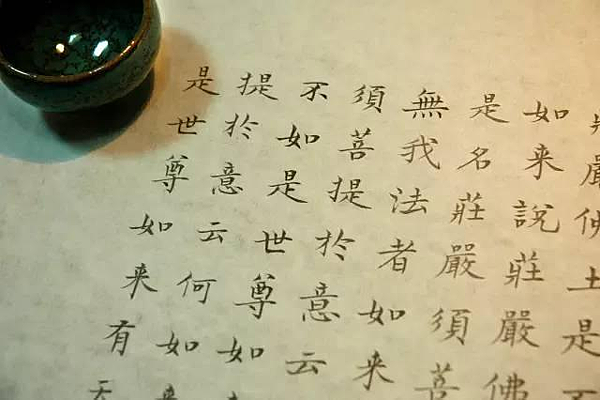 嚴佛土是
如来說莊嚴佛
是名莊嚴須菩
無我法者如来
須菩提於意云
不如是世尊如
提於意云何如来
是世尊如来有天